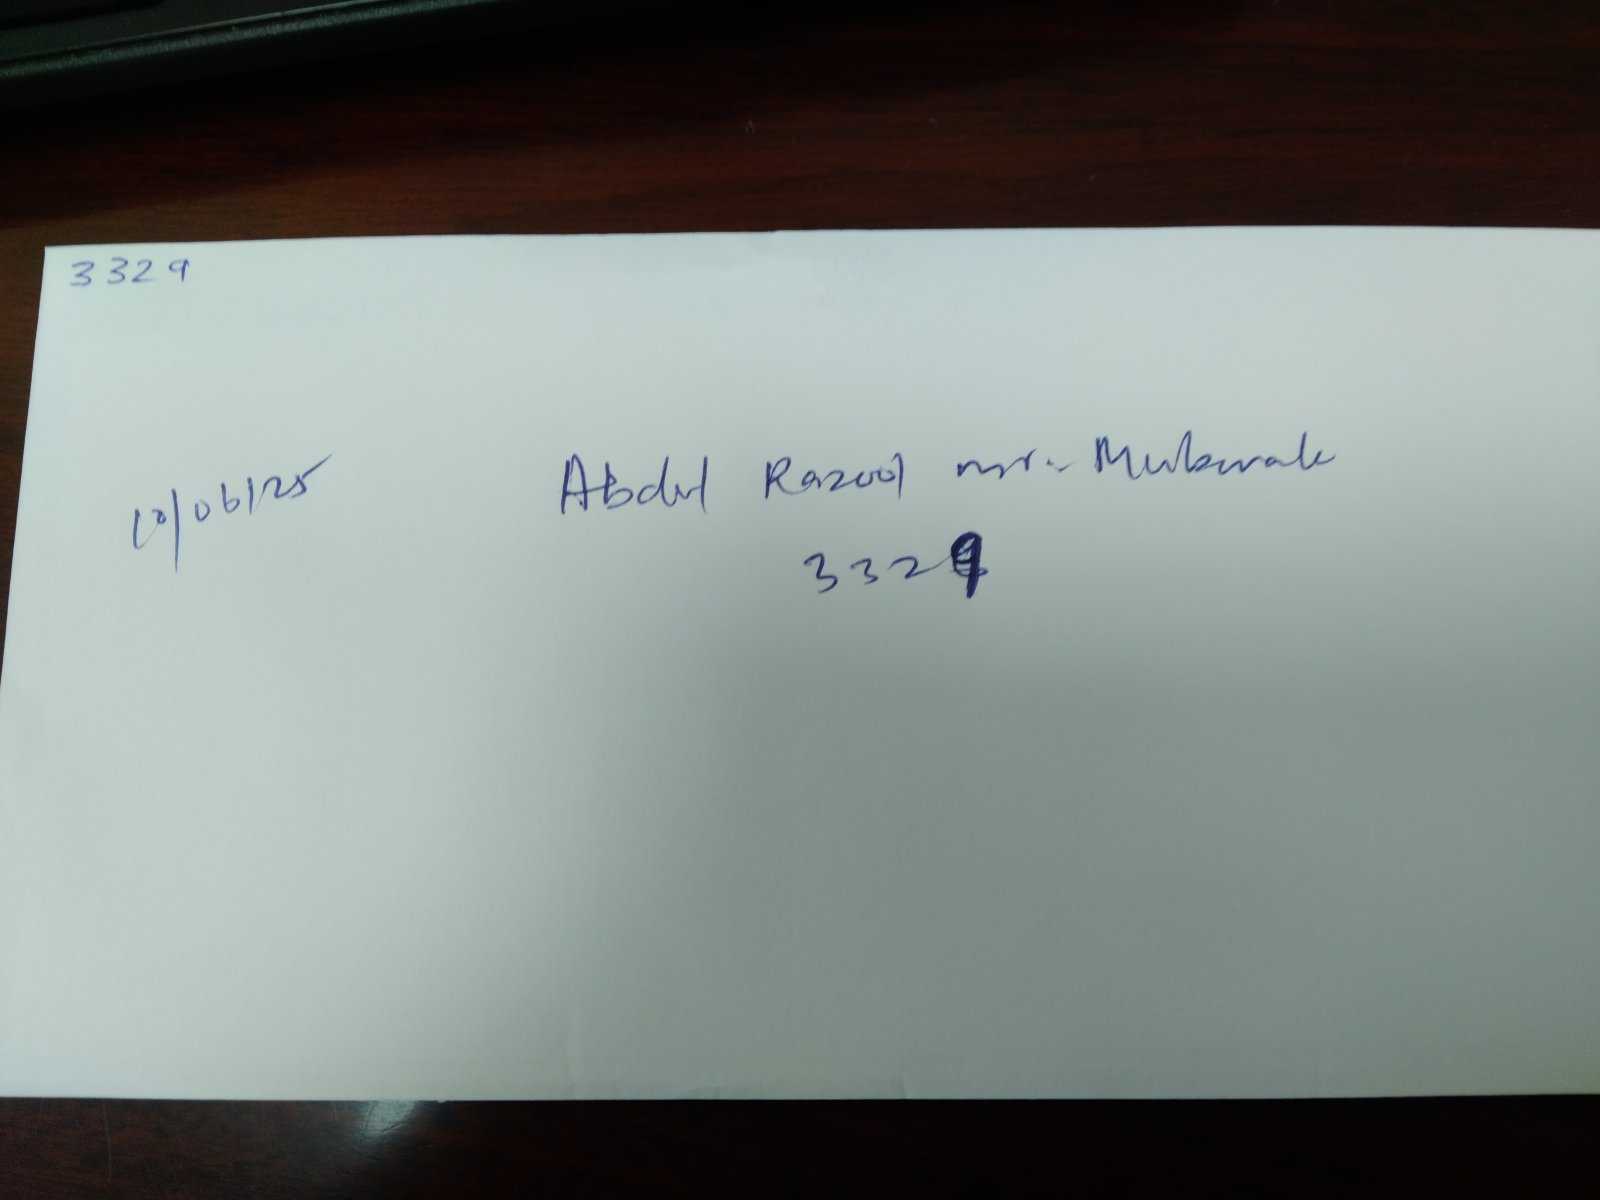 3329
10/06/25
Abdul Razool mr. Mubarak
3329